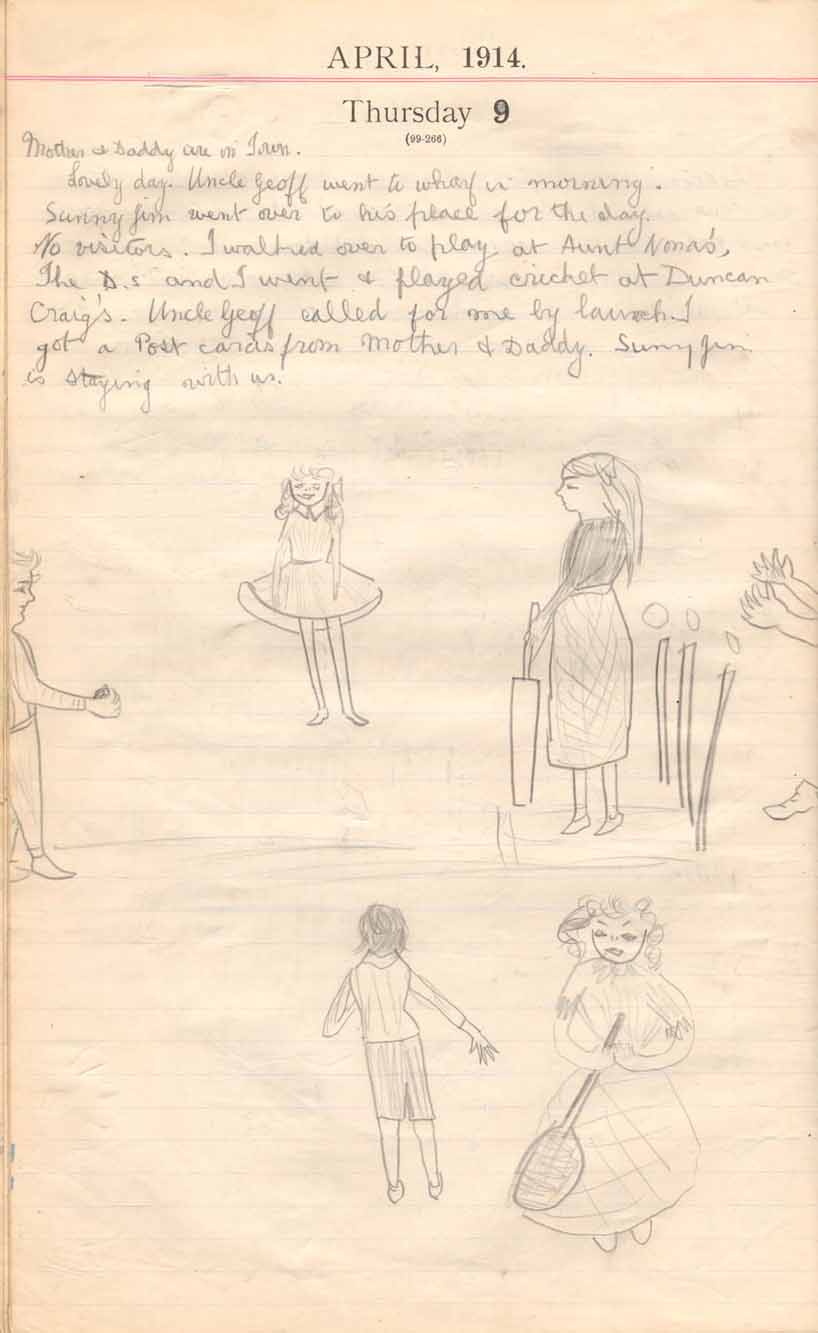 APRIL, 1914.
Thursday 9
(99-266)
Mother & Daddy are in Town.
Lovely day. Uncle Geoff went to wharf in morning.
Sunny Jim went over to his place for the day.
No visitors. I walked over to play at Aunt Nona's,
The D.s and I went & played cricket at Duncan
Craig's. Uncle Geoff called for me by launch. I
got a Post cards from Mother & Daddy. Sunny Jim
is staying with us.